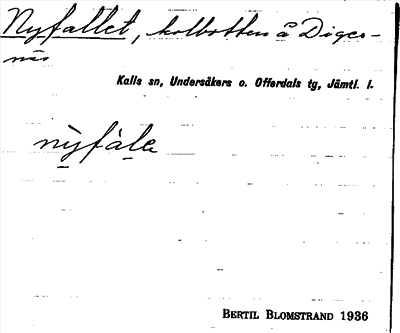 Nyfallet, kolbotten å Diger-
nis
Kalls sn, Undersåkers o. Offerdals tg, Jämtl. l.
nỳfála
BERTIL BLOMSTRAND 1936